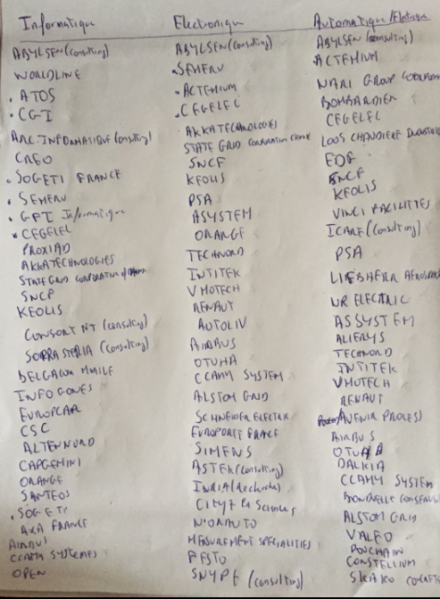 Informatique
ABYLSEN (consulting)
WORLDLINE
. ATOS
. CGI
ARC-INFORMATIQUE (consulting)
CAEO
. SOGETI FRANCE
. SEMERU
. GFI Informatique
CEGELEC
PROXIAD
AKKA TECHNOLOGIES
STATE GRID CORPORATION of
SNCF
KEOLIS
CONSORT NT (consulting)
SOPRA STERIA (consulting)
BELGACOM
INFO GONES
EUROPCAR
CSC
ALTERNORD
CAPGEMINI
ORANGE
SANTEOS
. SOGETI
AXA FRANCE
AIRBUS
CCAMY SYSTEMES
OPEN
Electronique
ABYLSEN (consulting)
. SEMERU
. ACTEMIUM
. CEGELEC
AKKA TECHNOLOGIES
STATE GRID CORPORATION
SNCF
KEOLIS
PSA
ASYSTEM
ORANGE
TECHNORD
INTITEK
VMOTECH
RENAUT
AUTOLIV
AIRBUS
OTUMA
CCAMY SYSTEM
ALSTOM GRID
SCHNEIDER ELECTRIC
EUROPORTE FRANCE
SIMENS
ASTEK (consulting)
INRIA (Recherche)
City + de Sciences
NORAUTO
MEASUREMENT SPECIALITIES
FESTO
SNYPE (consulting)
Automatique/
ABYLSEN (consulting)
ACTEMIUM
NARI GROUP
BOMBARDIER
CEGELEC
LOOS CHAUDIERE
EDF
SNCF
KEOLIS
VINCI FACILITIES
ICARE (consulting)
PSA
LIEBHERR
NR ELECTRIC
ASSYSTEM
ALIERYS
TECHNORD
INTITEK
VMOTECH
RENAUT
AVENIR PROCESS
AIRBUS
OTUMA
DALKIA
CCAMY SYSTEM
BONDUELLE
ALSTOM GRID
VALEO
CONSTELLIUM